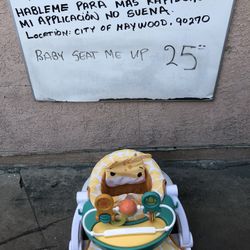 HABLEME PARA MAS RAPIDO,
MI APLICACIÓN NO SUENA.
LOCATION: CITY OF MAYWOOD, 90270
BABY SEAT ME UP 25$